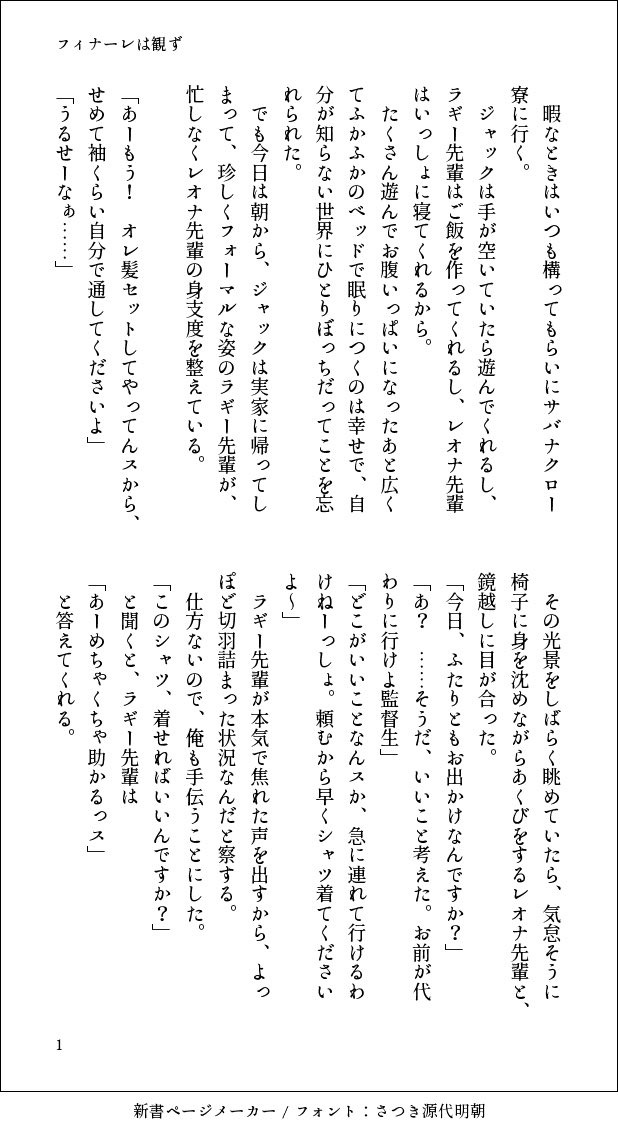 フィナーレは観ず
　暇なときはいつも構ってもらいにサバナクロー
寮に行く。
　ジャックは手が空いていたら遊んでくれるし、
ラギー先輩はご飯を作ってくれるし、レオナ先輩
はいっしょに寝てくれるから。
　たくさん遊んでお腹いっぱいになったあと広く
てふかふかのベッドで眠りにつくのは幸せで、自
分が知らない世界にひとりぼっちだってことを忘
れられた。
　でも今日は朝から、ジャックは実家に帰ってし
まって、珍しくフォーマルな姿のラギー先輩が、
忙しなくレオナ先輩の身支度を整えている。
「あーもう！　オレ髪セットしてやってんスから、
せめて袖くらい自分で通してくださいよ」
「うるせーなぁ……」
　その光景をしばらく眺めていたら、気怠そうに
椅子に身を沈めながらあくびをするレオナ先輩と、
鏡越しに目が合った。
「今日、ふたりともお出かけなんですか？」
「あ？　……そうだ、いいこと考えた。お前が代
わりに行けよ監督生」
「どこがいいことなんスか、急に連れて行けるわ
けねーっしょ。頼むから早くシャツ着てください
よ～」
　ラギー先輩が本気で焦れた声を出すから、よっ
ぽど切羽詰まった状況なんだと察する。
　仕方ないので、俺も手伝うことにした。
「このシャツ、着せればいいんですか？」
　と聞くと、ラギー先輩は
「あーめちゃくちゃ助かるっス」
　と答えてくれる。
1
新書ページメーカー / フォント：さつき源代明朝